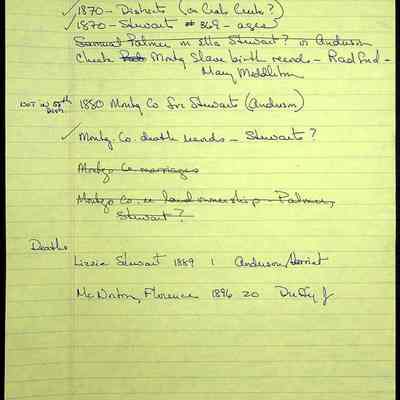 ✓1870 - Districts (on Crab Creek?)
✓1870 - Stewart #369 - ages
Samuel Palmer in Etta Stewart? or Anderson
Check Montg Slave birth records - Radford -
Mary Middleton
NOT IN Dist. 1880 Montg Co for Stewarts (Anderson)
✓ Montg. Co. death records - Stewarts?
Montgo Co marriages
Montgo Co. re land ownership - Palmer,
Stewart?
Deaths
Lizzie Stewart 1889 1 Anderson/Harriet
McNorton, Florence 1896 20 Duffy J